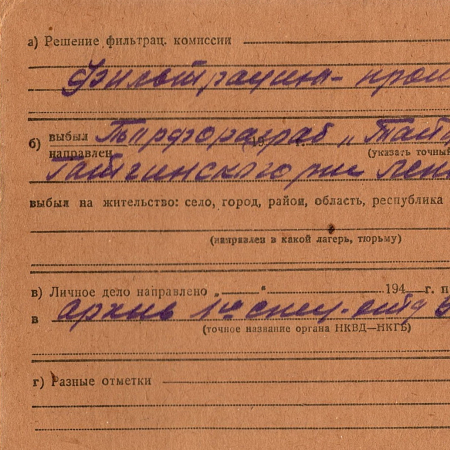 а) Решение фильтрац. комиссии
Фильтрацию- прош
б) выбыл Торфоразраб "Тайц
направлен 19 (указать точный
Гатчинского р-на Лен
выбыл на жительство: село, город, район, область, республика
(направлен в какой лагерь, тюрьму)
в) Личное дело направлено " 194 г. п
в архив 1го спец-отд
(точное название органа НКВД—НКГБ)
г) Разные отметки